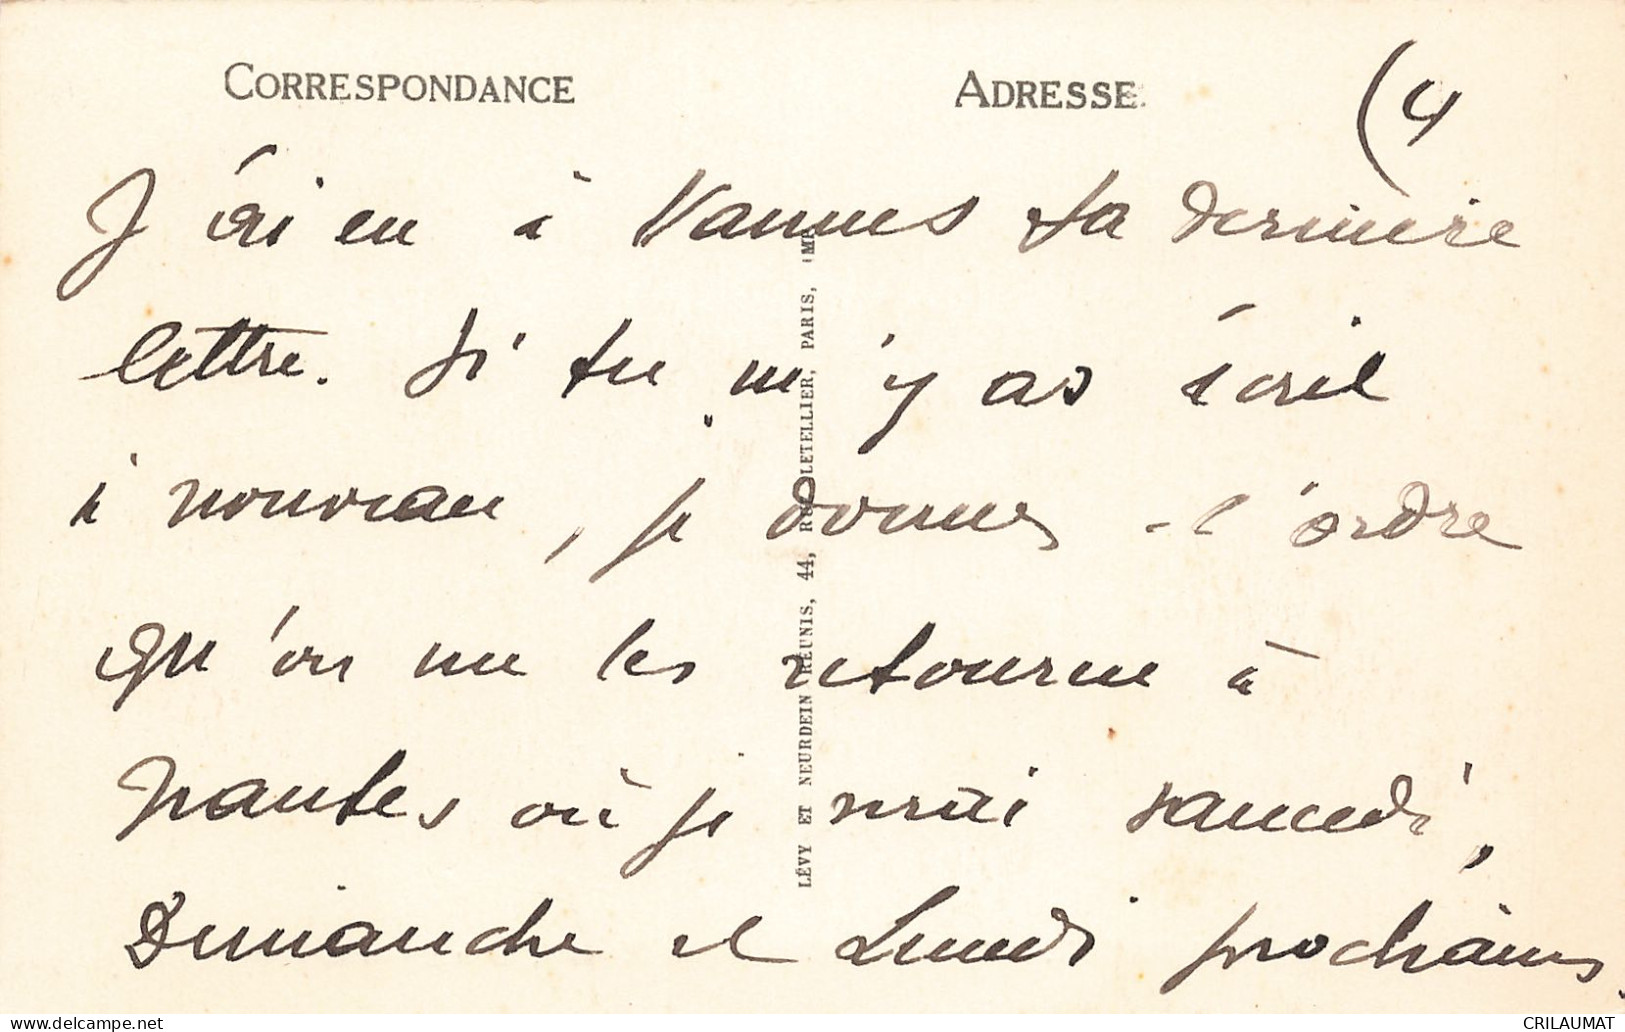 CORRESPONDANCE
ADRESSE
(4
J'ai eu à Vannes ta dernière
lettre. Si tu m'y as écrit
à nouveau, je donne l'ordre
qu'on me les retourne à
Nantes où je serai samedi,
Dimanche et Lundi prochains.
LÉVY ET NEURDEIN RÉUNIS, 44, RUE LETELLIER, PARIS, IMP.
CRILAUMAT